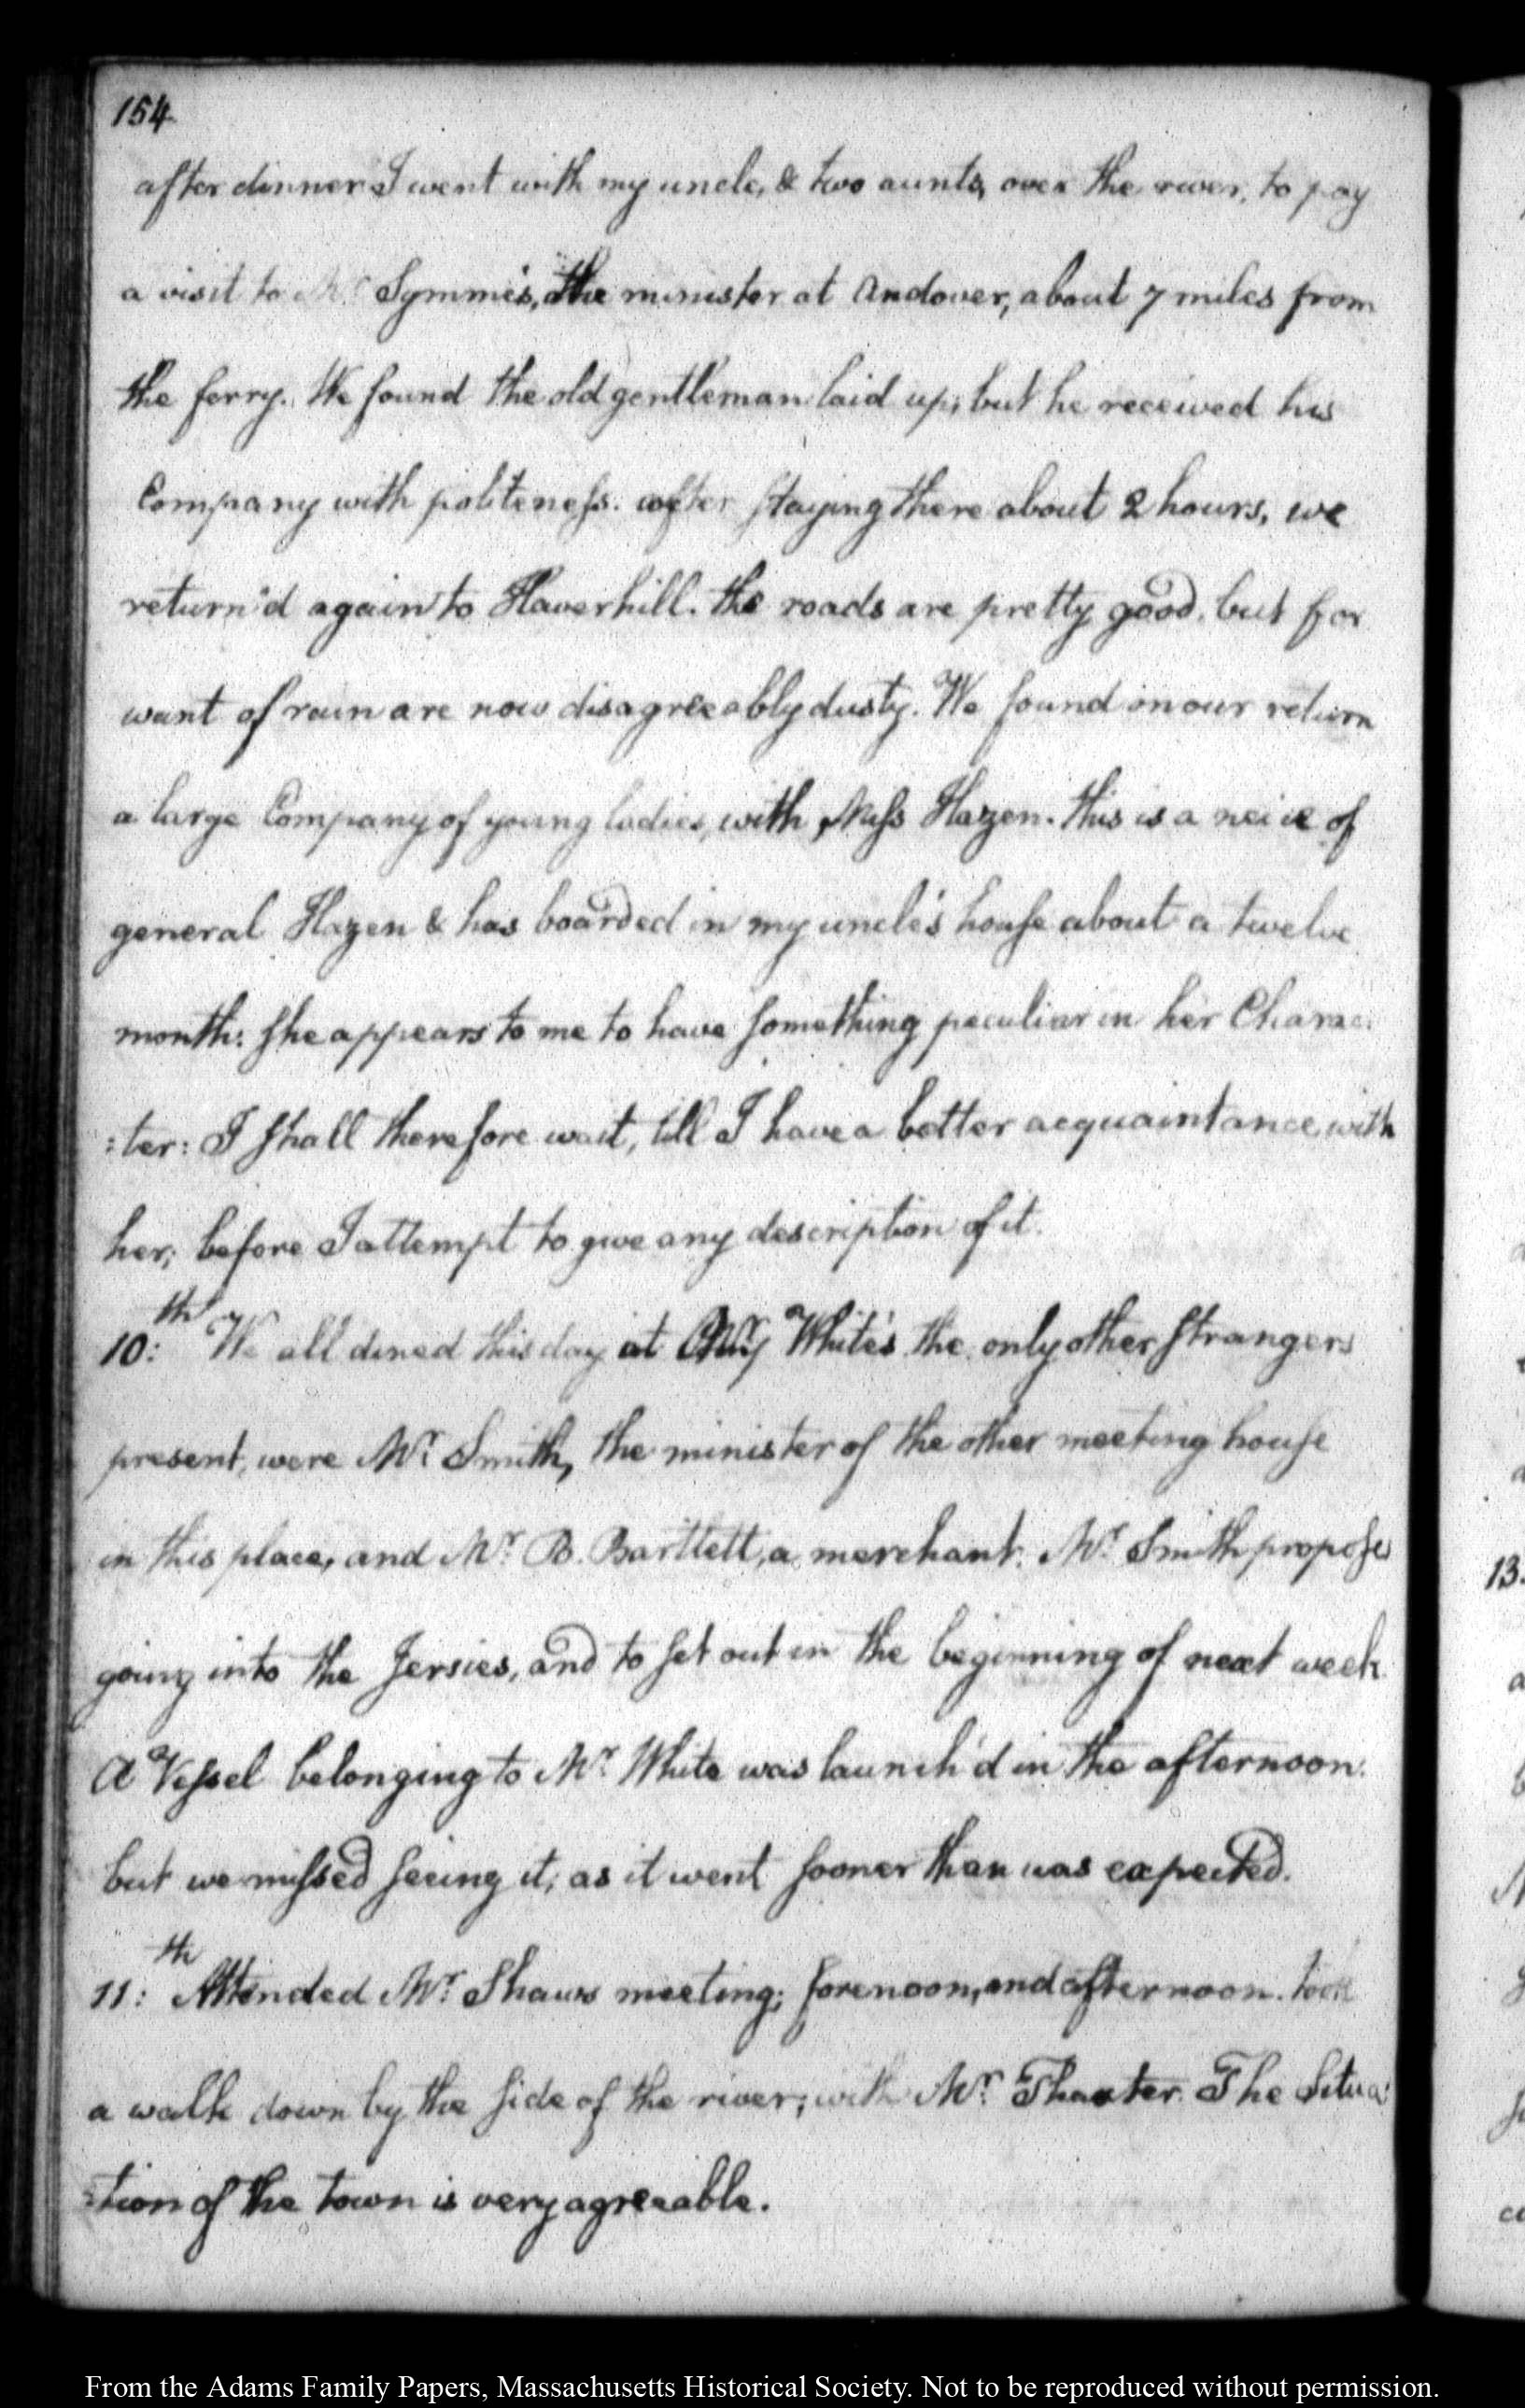 154
after dinner I went with my uncle, & two aunts, over the river, to pay
a visit to Mr. Symmes, the minister at Andover, about 7 miles from
the ferry. We found the old gentleman laid up; but he received his
Company with politeness. after staying there about 2 hours, we
return'd again to Haverhill. the roads are pretty good, but for
want of rain are now disagreeably dusty. We found on our return
a large Company of young ladies, with Miss Hazen. this is a neice of
general Hazen & has boarded in my uncle's house about a twelve
month: she appears to me to have something peculiar in her Charac:
:ter: I shall therefore wait, till I have a better acquaintance with
her; before I attempt to give any description of it.
10:th We all dined this day at Mr. White's the only other strangers
present, were Mr. Smith, the minister of the other meeting house
in this place, and Mr. B. Bartlett, a merchant. Mr. Smith proposes
going into the Jersies, and to set out in the beginning of next week
A Vessel belonging to Mr. White was launch'd in the afternoon.
but we missed seeing it; as it went sooner than was expected.
11:th Attended Mr. Shaws meeting; forenoon, and afternoon. took
a walk down by the side of the river; with Mr. Thaxter. The Situa:
:tion of the town is very agreeable.
13.
From the Adams Family Papers, Massachusetts Historical Society. Not to be reproduced without permission.